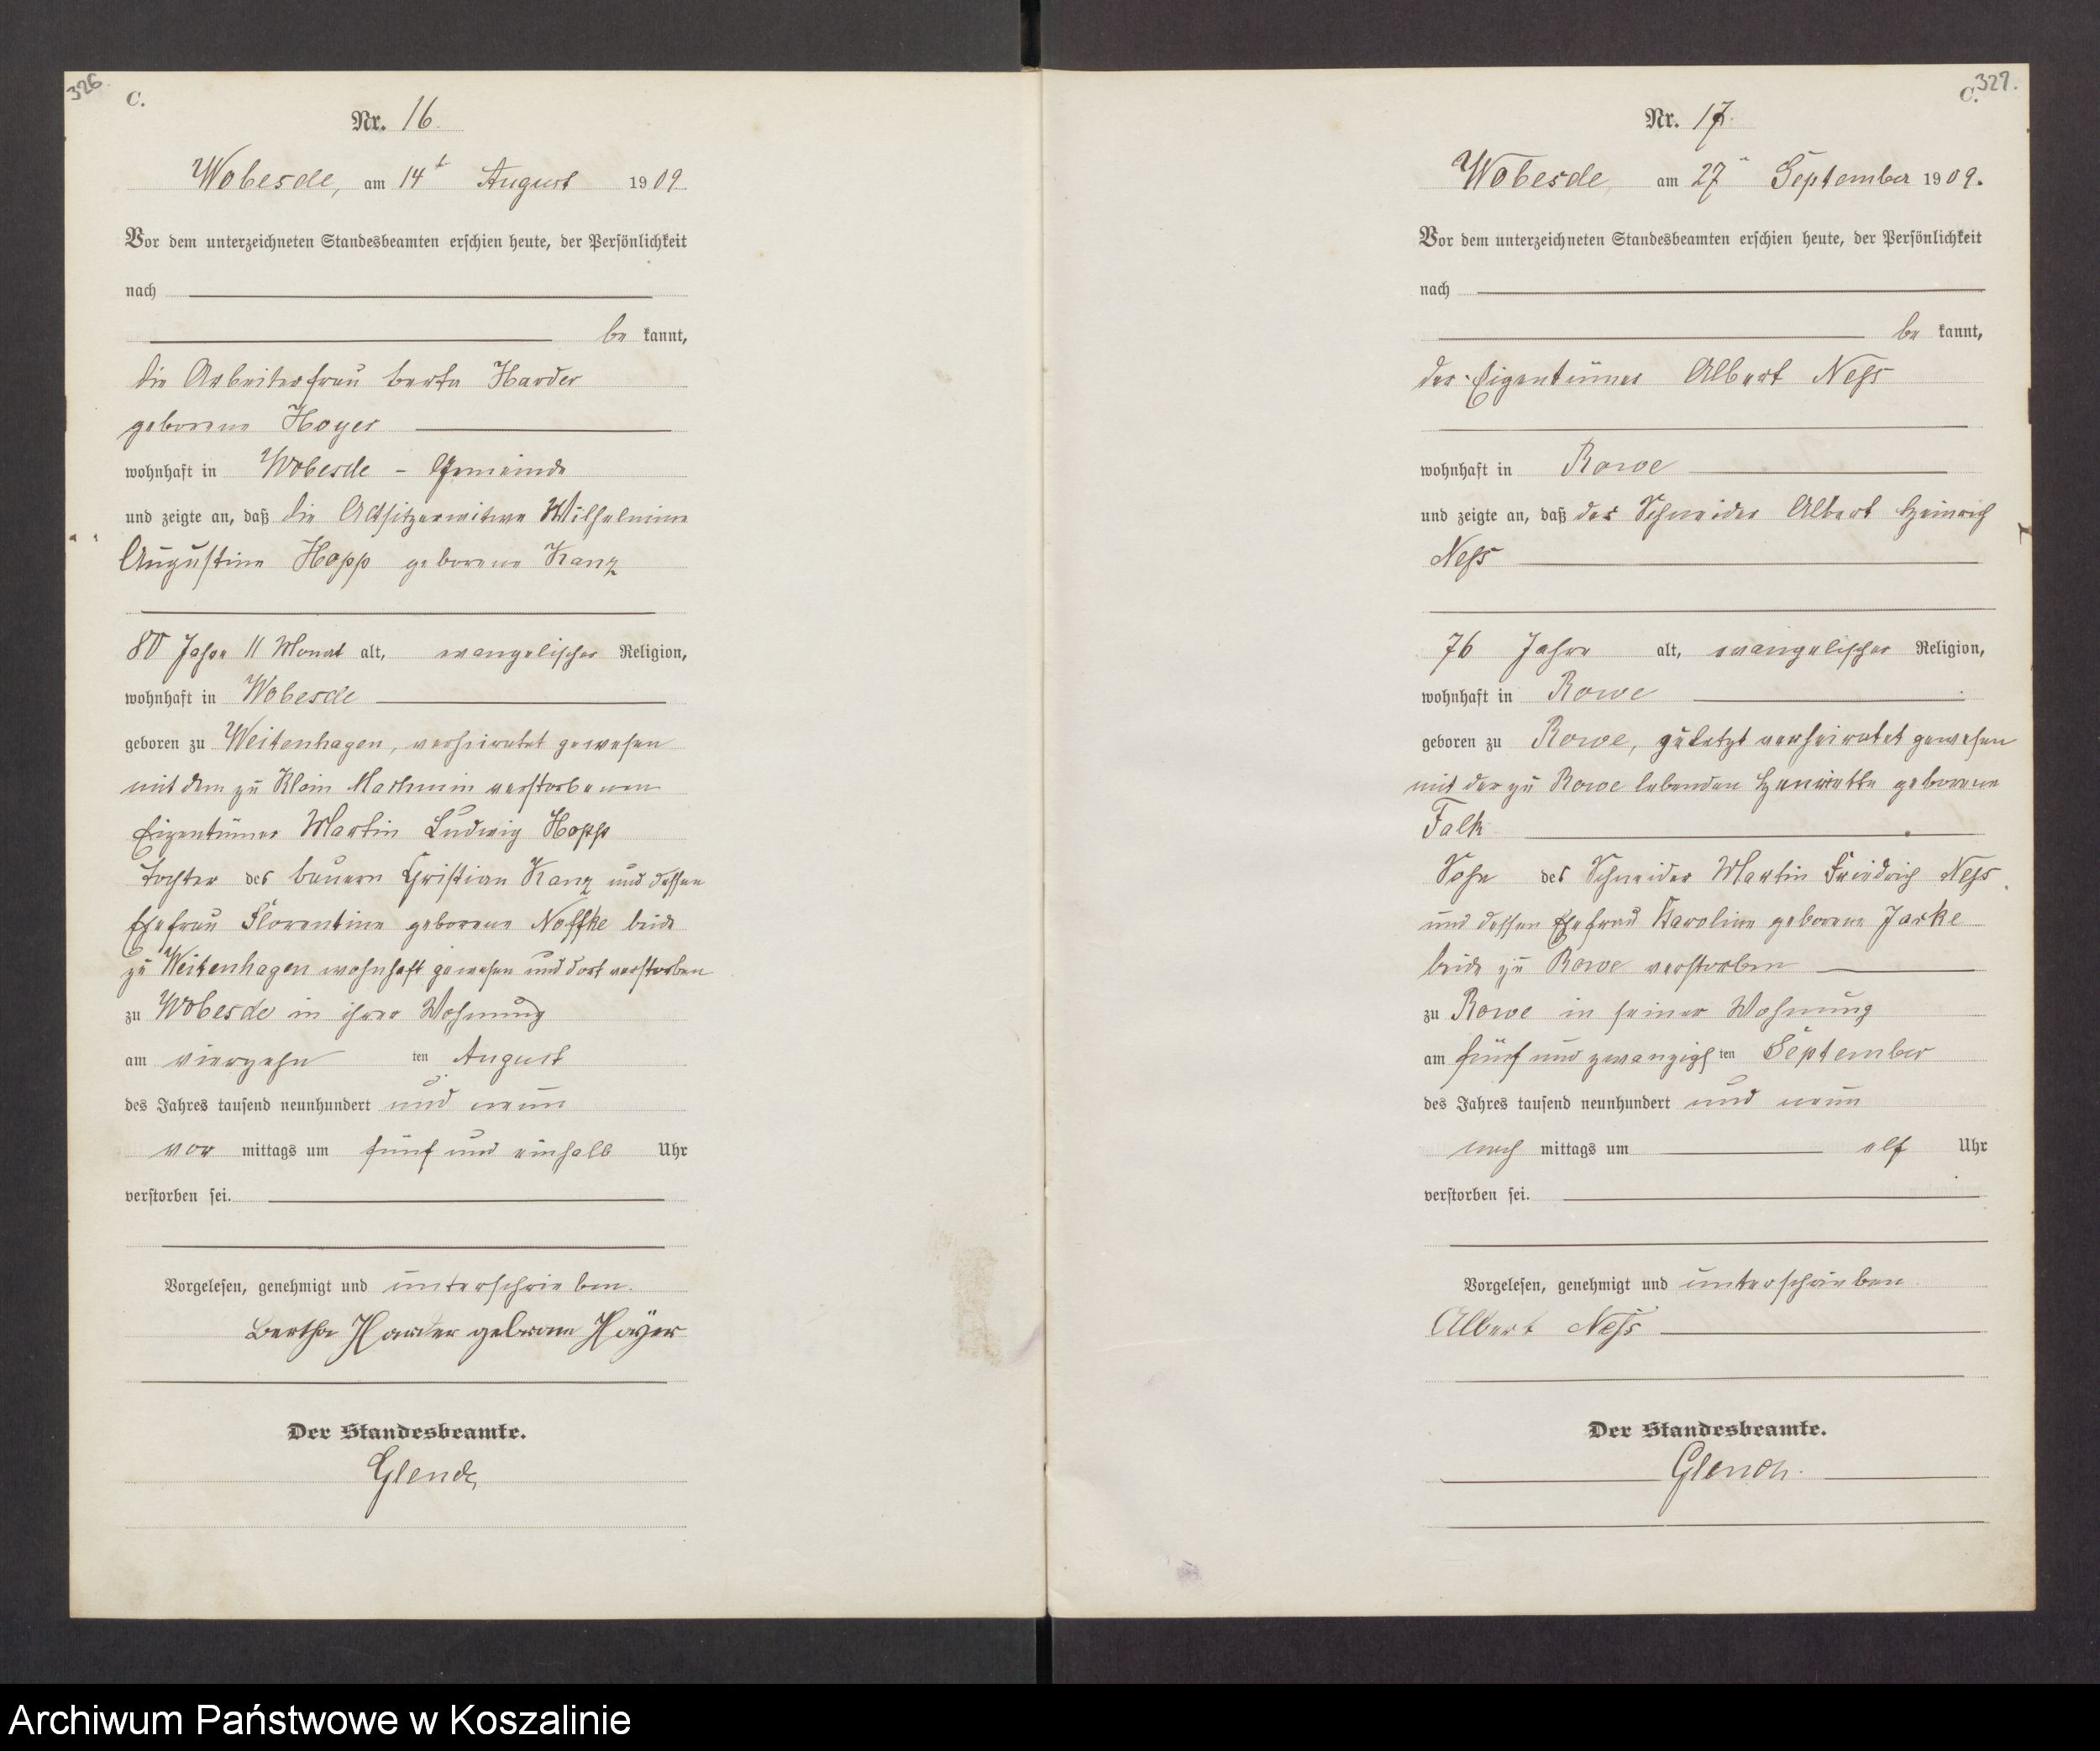 326
C.
Nr. 16.
Wobesde, am 14t August 1909.
Vor dem unterzeichneten Standesbeamten erschien heute, der Persönlichkeit
nach
be kannt,
die Arbeiterfrau Berta Harder
geborene Hoyer
wohnhaft in Wobesde - Gemeinde
und zeigte an, daß die Altsitzerwitwe Wilhelmine
Augustine Hopp geborene Kanz
80 Jahre 11 Monat alt, evangelischer Religion,
wohnhaft in Wobesde
geboren zu Weitenhagen, verheiratet gewesen
mit dem zu Klein Machmin verstorbenen
Eigentümer Martin Ludwig Hopp
Tochter des Bauern Christian Kanz und dessen
Ehefrau Florentine geborene Noffke beide
zu Weitenhagen wohnhaft gewesen und dort verstorben
zu Wobesde in ihrer Wohnung
am vierzehn ten August
des Jahres tausend neunhundert und neun
vor mittags um fünf und einhalb Uhr
verstorben sei.
Vorgelesen, genehmigt und unterschrieben.
Bertha Harder geborene Häyer
Der Standesbeamte.
327.
C.
Nr. 17.
Wobesde, am 27 September 1909.
Vor dem unterzeichneten Standesbeamten erschien heute, der Persönlichkeit
nach
be kannt,
der Eigentümer Albert Neß
wohnhaft in Rowe
und zeigte an, daß der Schneider Albert Heinrich
Neß
76 Jahre alt, evangelischer Religion,
wohnhaft in Rowe
geboren zu Rowe, zuletzt verheiratet gewesen
mit der zu Rowe lebenden Henriette geborene
Falk
Sohn des Schneider Martin Friedrich Neß
und dessen Ehefrau Karoline geborene Jarke
beide zu Rowe verstorben
zu Rowe in seiner Wohnung
am fünf und zwanzigs ten September
des Jahres tausend neunhundert und neun
nach mittags um elf Uhr
verstorben sei.
Vorgelesen, genehmigt und unterschrieben
Albert Neß
Der Standesbeamte.
Archiwum Państwowe w Koszalinie